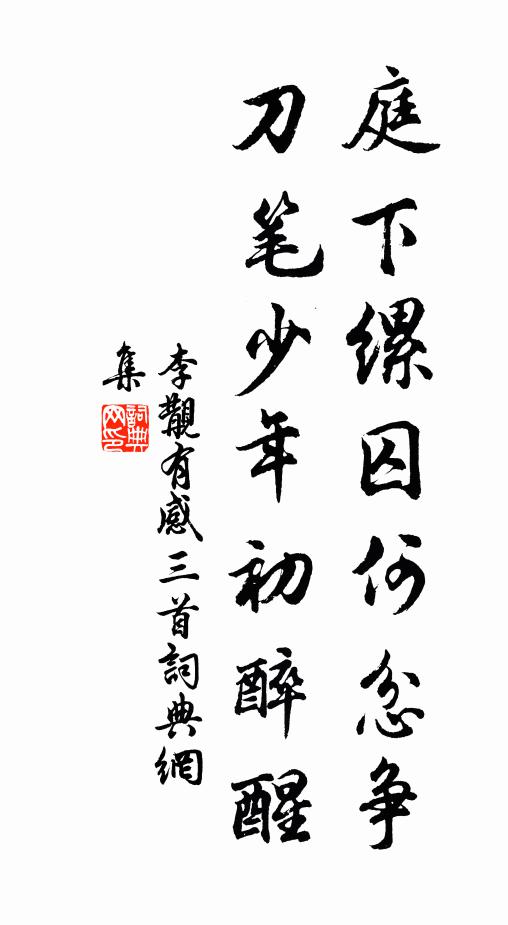 庭下缧囚何忿争
刀笔少年初醉醒
李觀有感三首詞典網
集
詞典網印